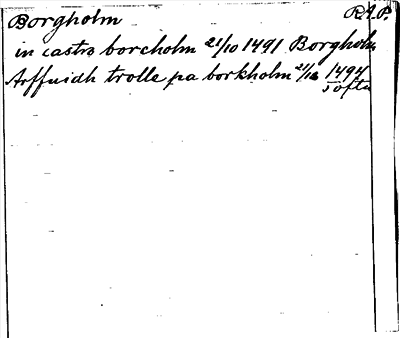 Borgholm R.A.P.
in castro borcholm 21/10 1491 Borgholm
Arffuidh trolle pa borkholm 21/12 1494
5 ofta